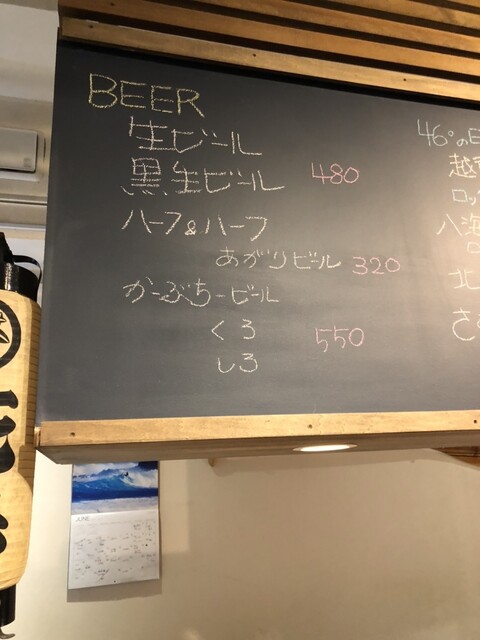 BEER
生ビール
黒生ビール 480
ハーフ&ハーフ
あがりビール 320
かーぶちービール
くろ 550
しろ
46°の
越
ロッ
八海
北
さ
JUNE